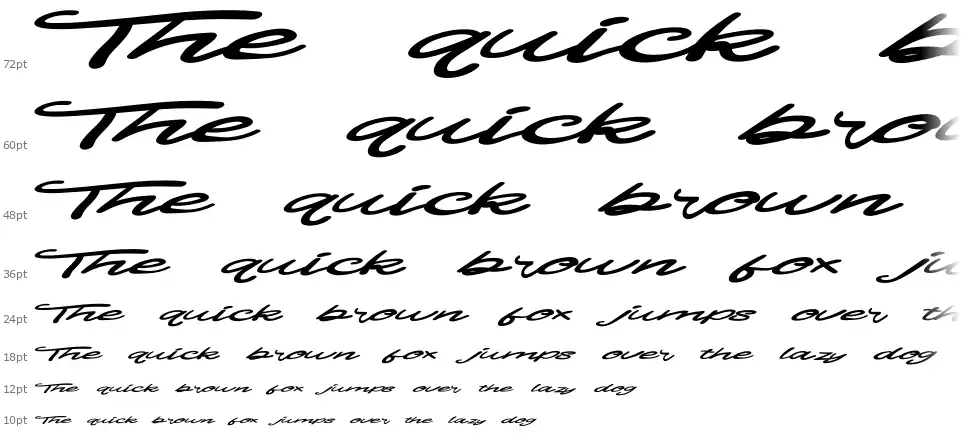 72pt The quick b
60pt The quick brow
48pt The quick brown
36pt The quick brown fox ju
24pt The quick brown fox jumps over th
18pt The quick brown fox jumps over the lazy dog
12pt The quick brown fox jumps over the lazy dog
10pt The quick brown fox jumps over the lazy dog